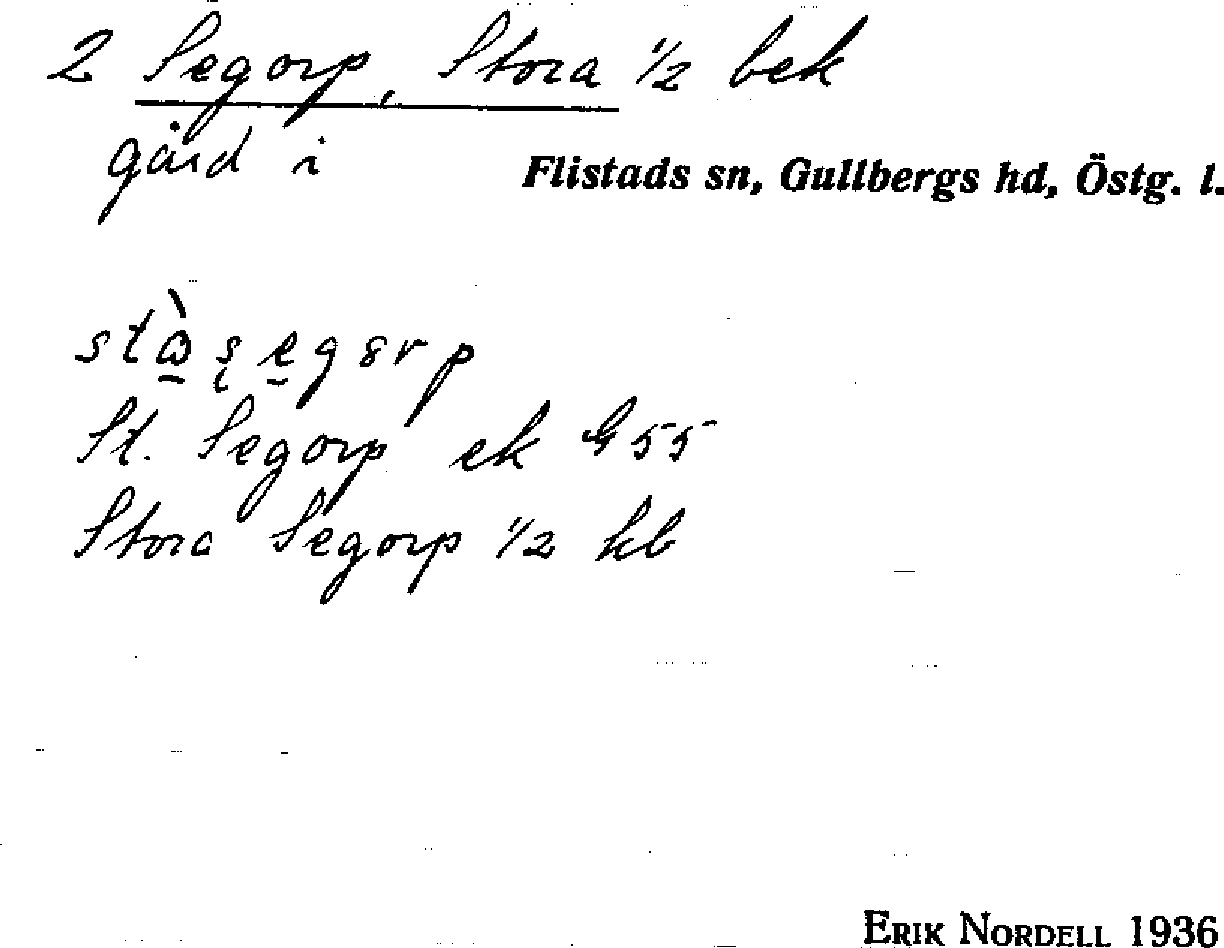 2 Segorp, Stora 1/2 bek
gård i Flistads sn, Gullbergs hd, Östg. l.
St. Segorp ek G 55
Stora Segorp 1/2 hb
ERIK NORDELL 1936